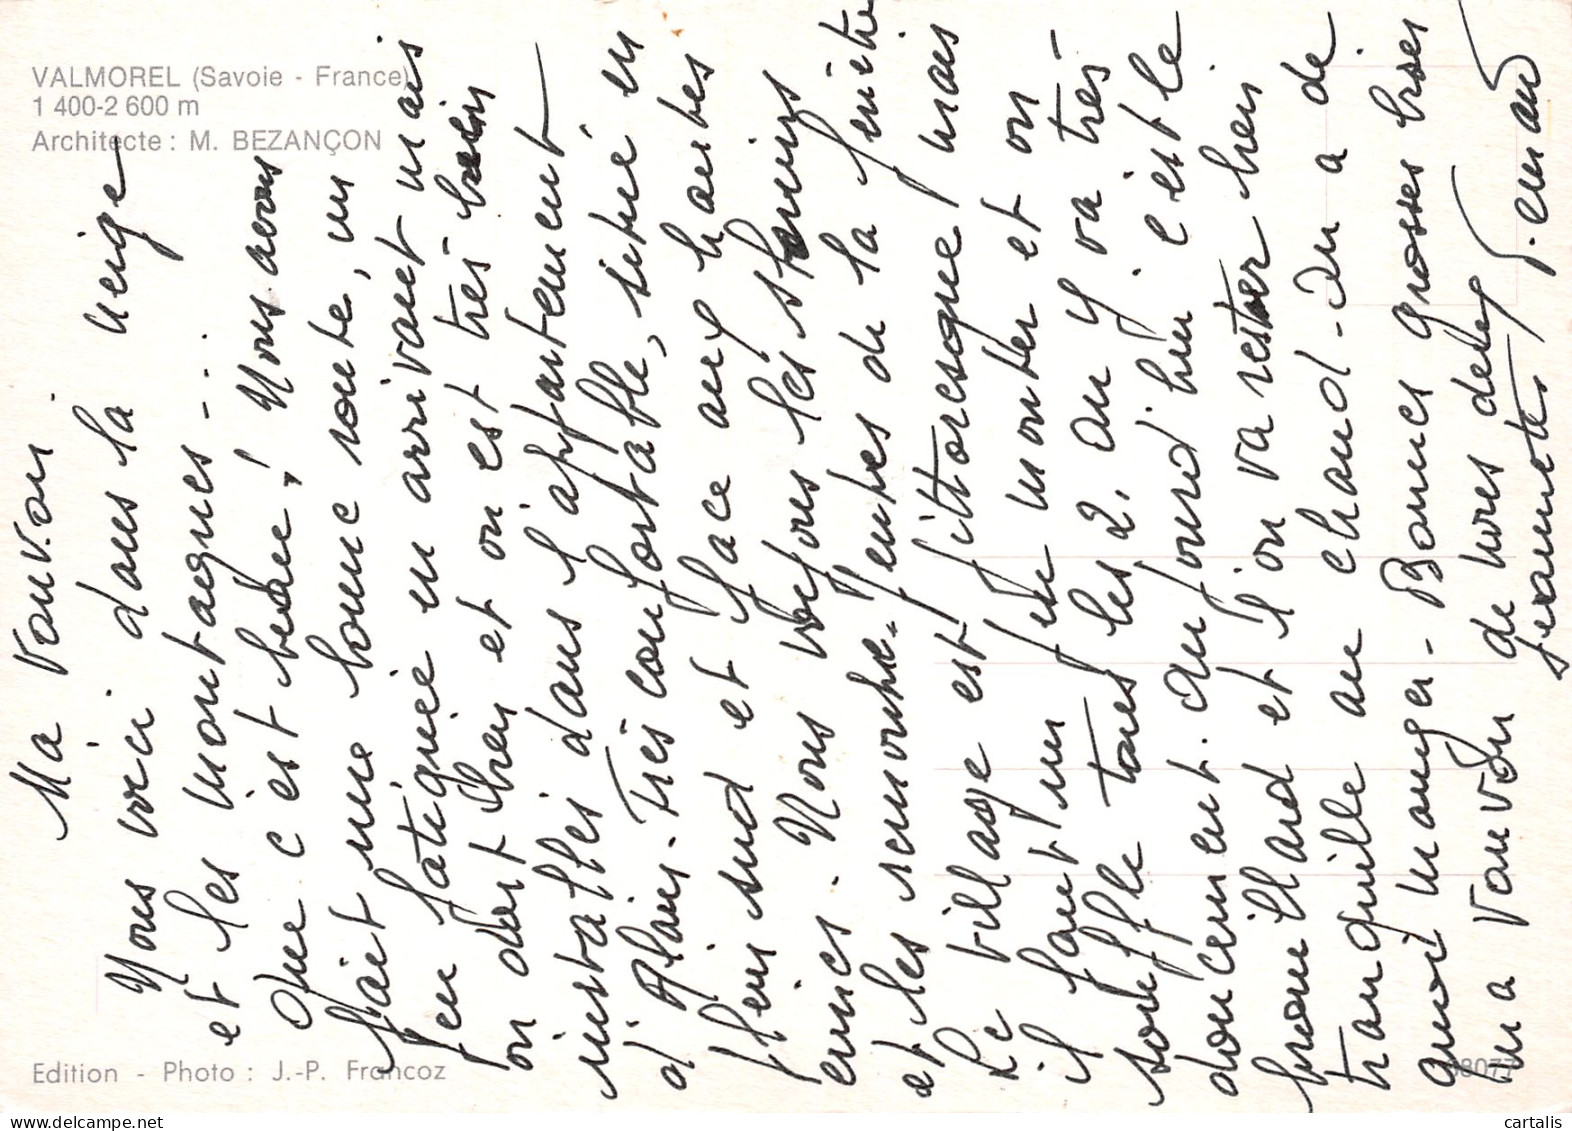 VALMOREL (Savoie - France)
1 400-2 600 m
Architecte : M. BEZANÇON
Ma Vonvon
Nous voici dans la neige
et les montagnes...
Que c'est beau ! Nous avons
fait une bonne route, un
peu fatiguée en arrivant mais
on dort bien et on est très bien
installés dans l'appartement
d'Alain. Très confortable, situé en
plein sud et face aux hautes
cimes. Nous voyons les skieurs
et les remontées pentes de la fenêtre
Le village est pittoresque mais
il faut un peu monter et on
souffle tous les 2. On y va très
doucement. Aujourd'hui c'est le
brouillard et l'on va rester bien
tranquille au chaud. On a de
quoi manger. Bonnes grosses bises
ma Vonvon de nous deux
Jeannette,
Edition - Photo : J.-P. Francoz
08077
cartalis